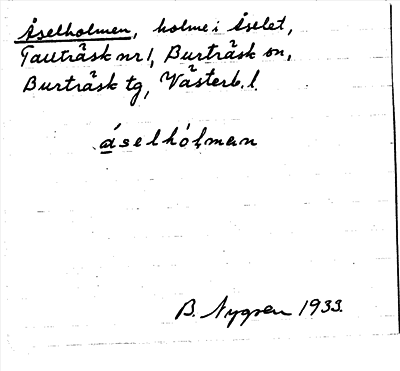 Åselholmen, holme i Åselet,
Tallträsk nr 1, Burträsk sn,
Burträsk tg, Västerb. l.
áselhólman
B. Nygren 1933.